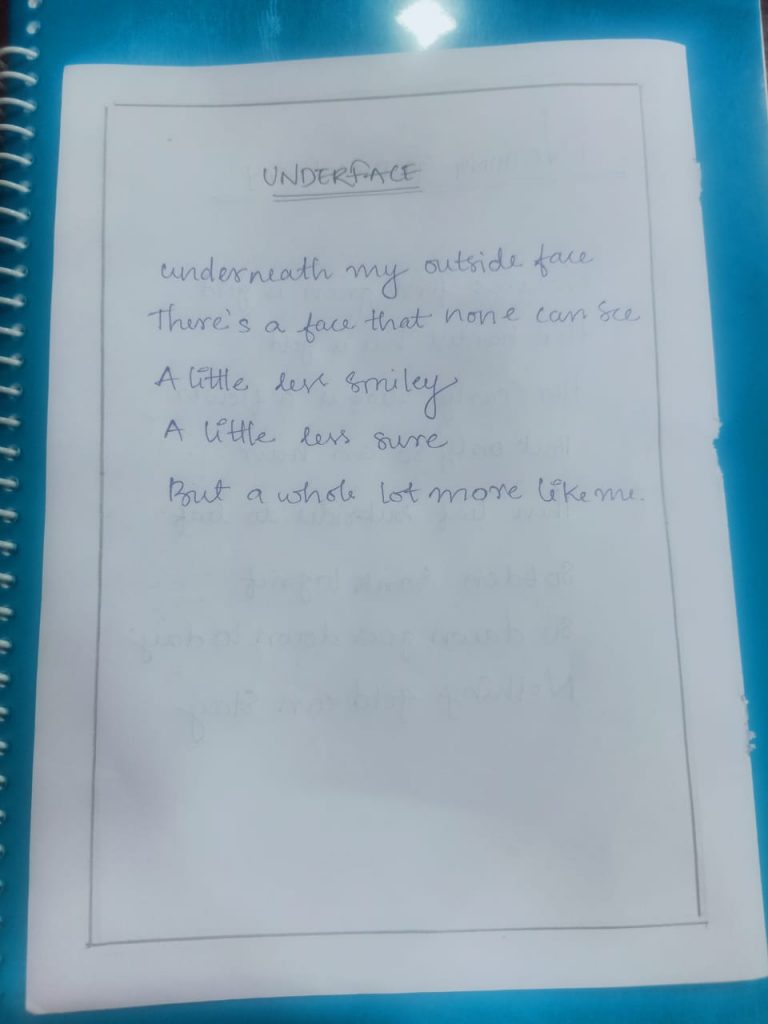 UNDERFACE
underneath my outside face
There's a face that none can see
A little less smiley
A little less sure
But a whole lot more like me.